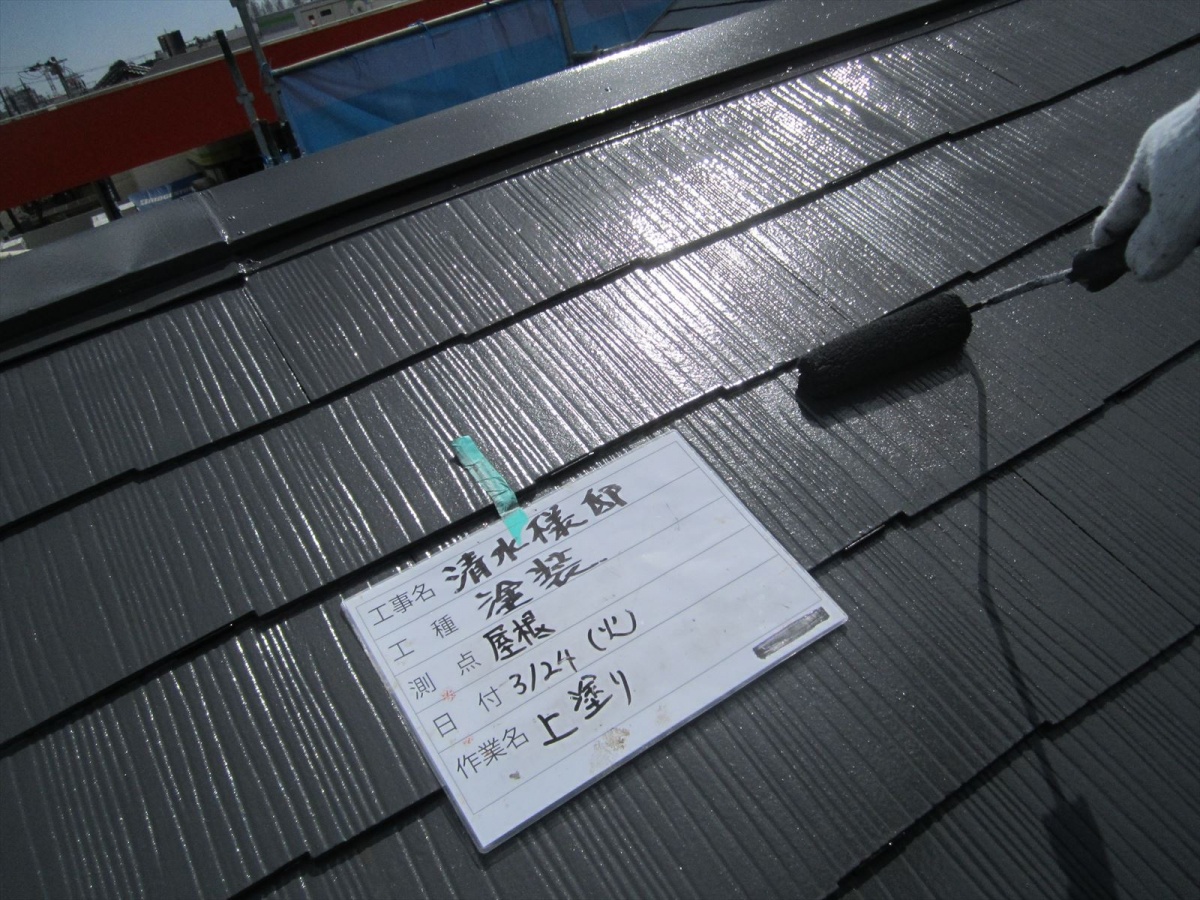 工事名 清水様邸
工種 塗装
測点 屋根
日付 3/24(火)
作業名 上塗り